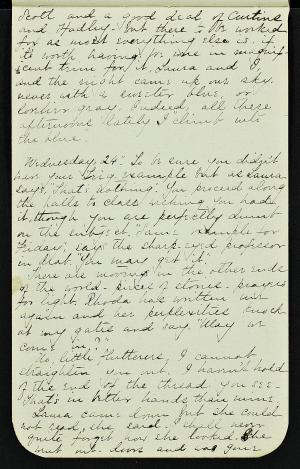 Scott and a good deal of Curtius
and Hadley. But there to be worked
for as most everything else is. It
is worth having for we in
turn for it. Laura and I
and the night came up our sky
never with a sweeter blue, or
gray. Indeed, all these
afternoons lately I "climb into
the blue".
Wednesday, 24" To be sure you didn't
have your Trig. example but as Laura
says, "That's nothing". You proceed along
the halls to class wishing you had
it, though you are perfectly dumb
on the subject. "Same example for
Friday", says the sharp-eyed professor
in that "You may get it".
There are movings in the other ends
of the world - piles of stones - prayers
for light. Rhoda has written me
again and her perplexities knock
at my gates and say, "May we
come in"?
No, little flutterers, I cannot
straighten you out. I haven't hold
of the end of the thread you see.
That's in better hands than mine.
Laura came down but she could
not read, she said. I shall never
quite forget how she looked. She
went out doors and was gone